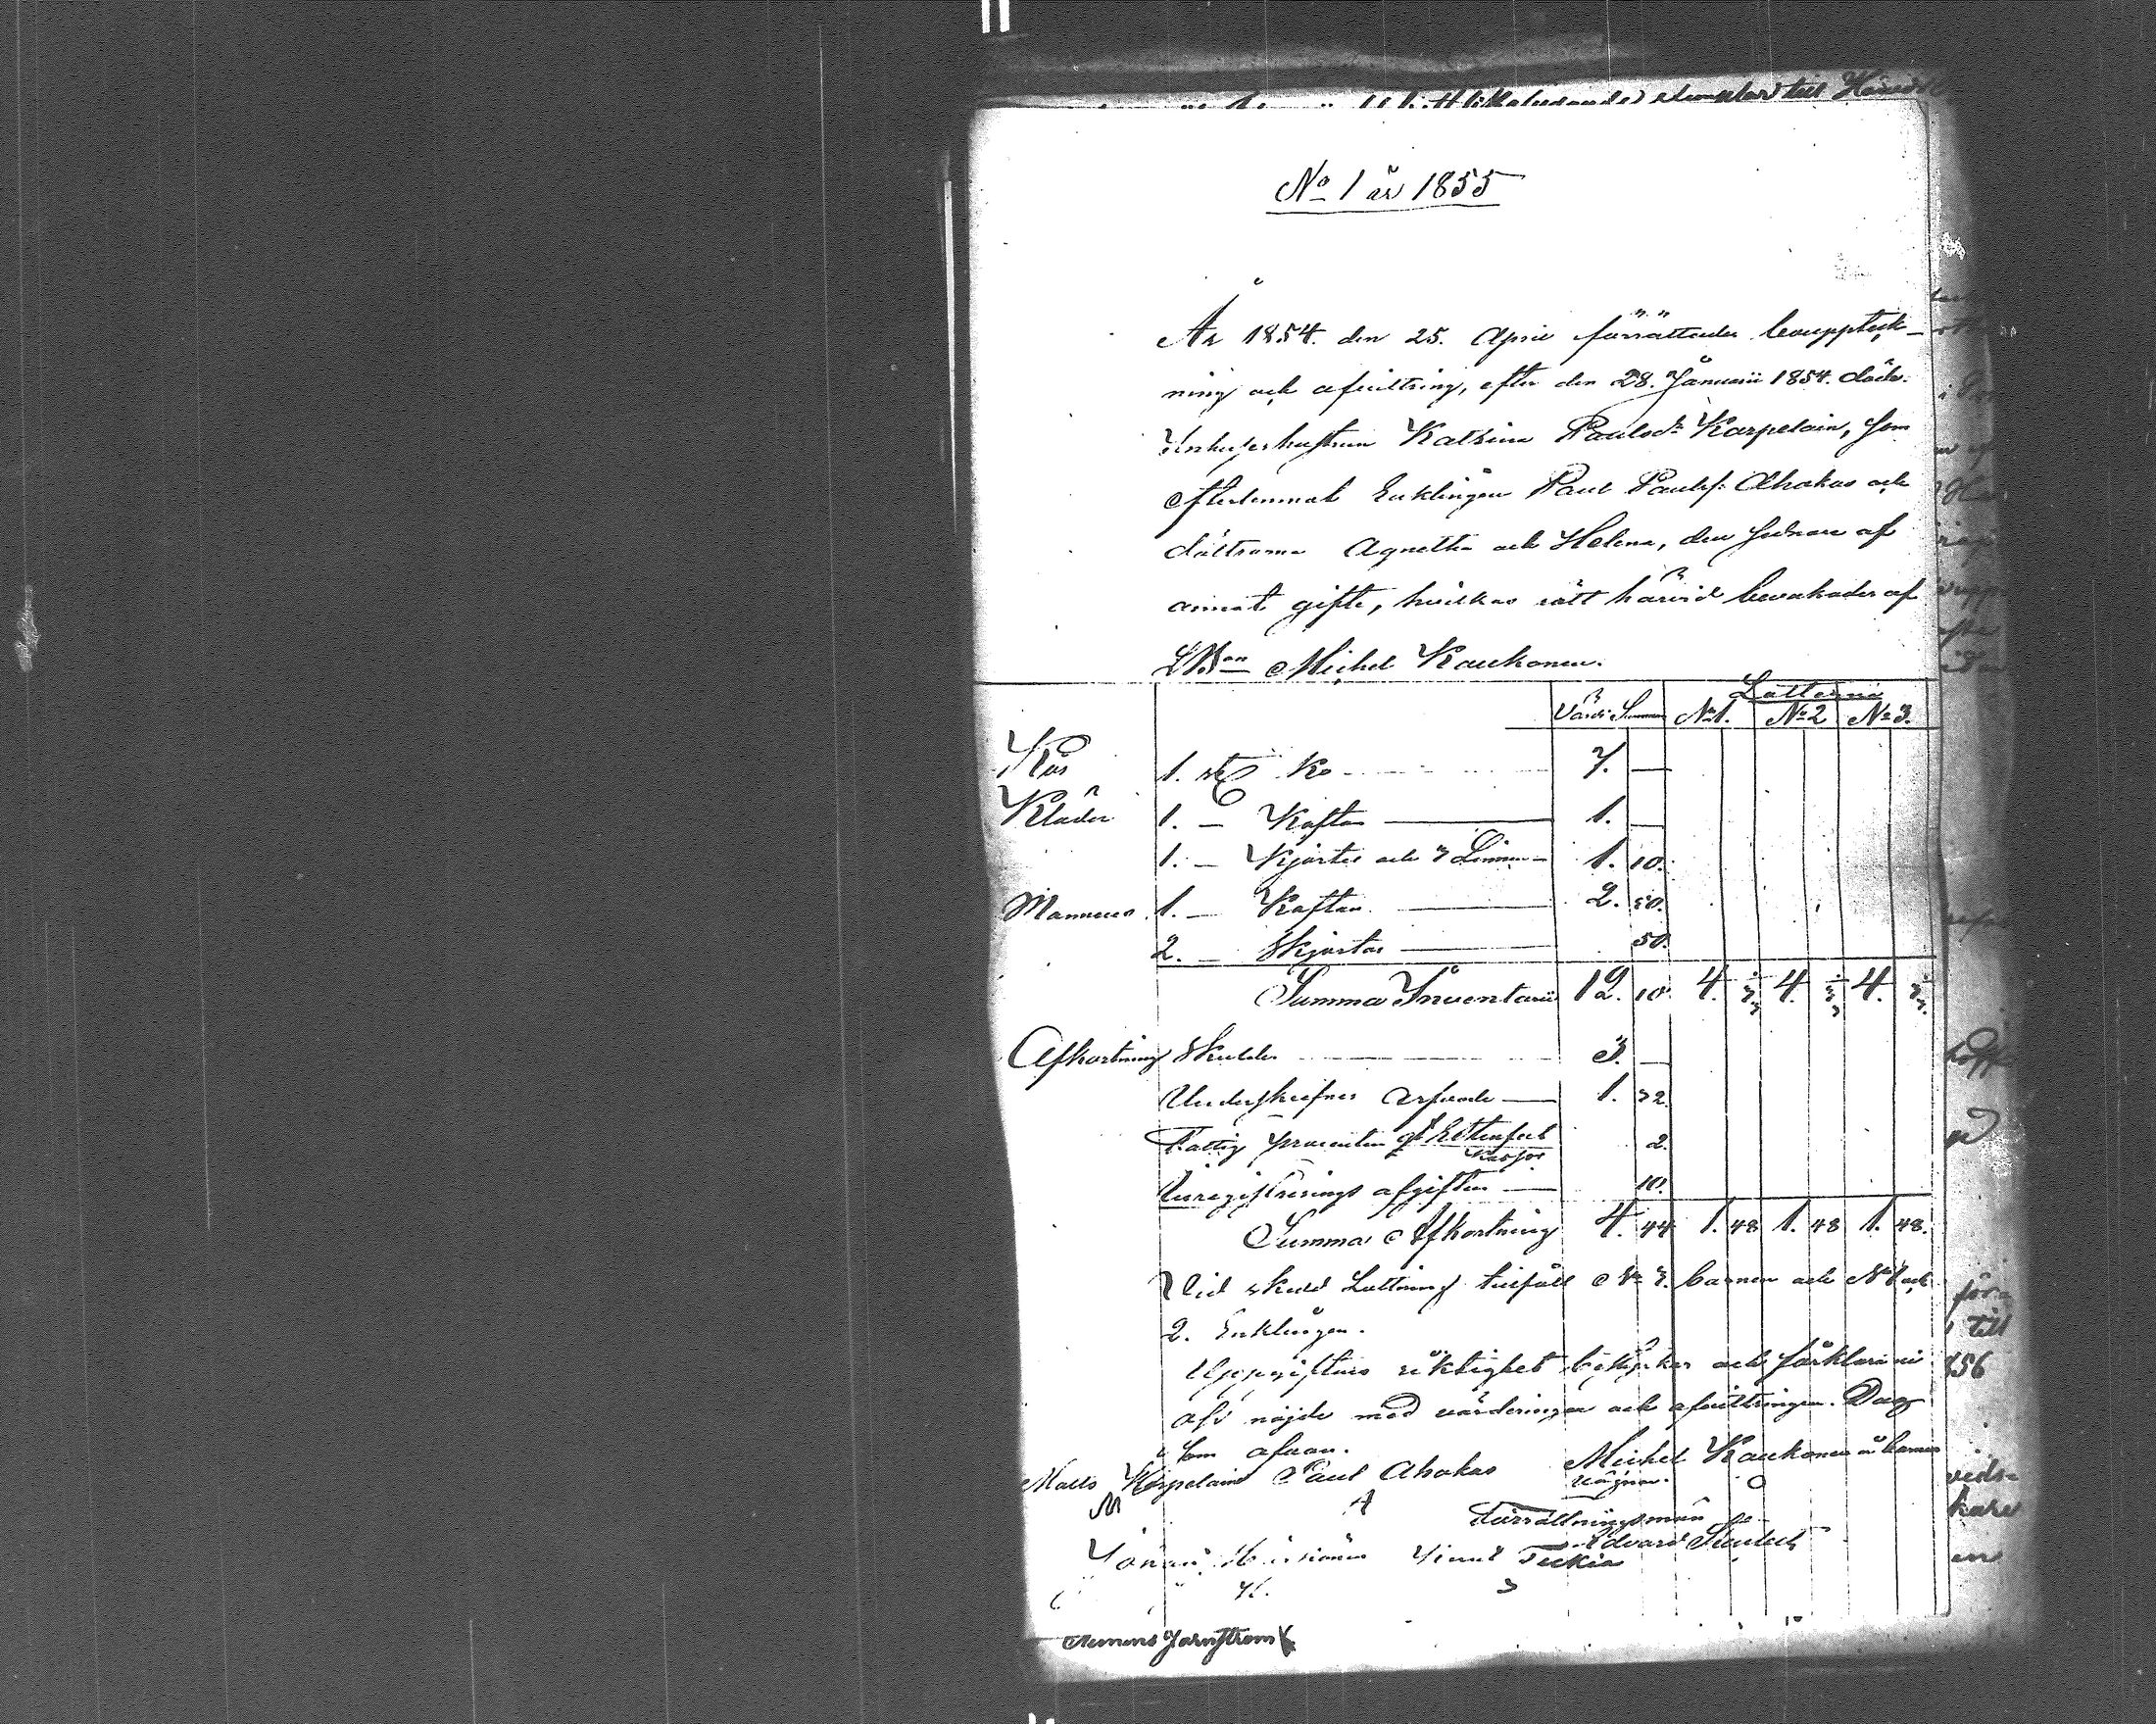 No 1 år 1855
År 1854. den 25. April förrättades bouppteck-
ning och afvittring, efter den 28. Januarii 1854. döde
Inhyseshustrun Katrina Paulsdr Karpelain, som
efterlemnat Enklingen Paul Paulss. Ahokas och
döttrarna Agnetha och Helena, den sednare af
annat gifte, hvilkas rätt härvid bevakades af
Michel Kaukonen.
Lotterna
Värde Summa No 1. No 2 No 3.
1. st Ko 7. —
Kläder 1. — Kaftan 1. —
1. — Kjortel och 3 Linnen 1. 10.
Mannens 1. — Kaftan 2. 50.
2. — Skjortor 50.
Summa Inventarii 12. 10. 4. 4. 4.
Afkortning Skulder 3. —
1. 32.
Fattig procenten 2.
Inregistrerings afgiften 10.
Summa Afkortning 4. 44 1. 48 1. 48 1. 48.
Vid skedd Lottning tillföll No 3. barnen och No 1 och
2. Enklingen.
Uppgiftens riktighet och förklara vi
oss nöjde med värderingen och afvittringen. Dag
som ofvan.
Matts Karpelain Paul Ahokas Michel Kaukonen å barnens
vägnar.
M A O
Förrättningsmän
Edvard
Teckia
Clemens Jarnstrom